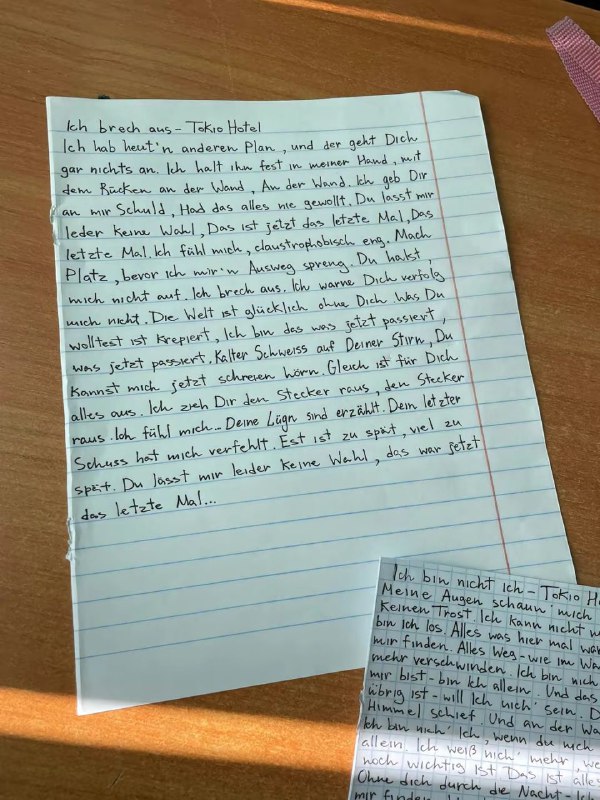 Ich brech aus - Tokio Hotel
Ich hab heut'n anderen Plan, und der geht Dich
gar nichts an. Ich halt ihn fest in meiner Hand, mit
dem Rücken an der Wand, An der Wand. Ich geb Dir
an mir Schuld, Had das alles nie gewollt. Du lässt mir
leder Keine Wahl, Das ist jetzt das letzte Mal, Das
letzte Mal. Ich fühl mich, claustrophobisch eng. Mach
Platz, bevor ich mir'n Ausweg spreng. Du halst,
mich nicht auf. Ich brech aus. Ich warne Dich verfolg
mich nicht. Die Welt ist glücklich ohne Dich Was Du
wolltest ist Krepiert, Ich bin das was jetzt passiert,
was jetzt passiert. Kalter Schweiss auf Deiner Stirn, Du
Kannst mich jetzt schreien hörn. Gleich ist für Dich
alles aus. Ich zieh Dir den Stecker raus, den Stecker
raus. Ich fühl mich... Deine Lügn sind erzählt. Dein letzter
Schuss hat mich verfehlt. Est ist zu spät, viel zu
spät. Du lässt mir leider Keine Wahl, das war jetzt
das letzte Mal...
Ich bin nicht ich - Tokio Ho
Meine Augen schaun mich
Keinen Trost Ich kann nicht m
bin ich los. Alles was hier mal war
mir finden. Alles Weg - wie im Wa
mehr verschwinden. Ich bin nich
mir bist - bin Ich allein. Und das
übrig ist - will Ich nich' sein. D
Himmel schief. Und an der Wa
Ich bin nich' Ich, wenn du nich
allein. Ich weiß nich' mehr, we
noch wichtig ist Das ist alles
Ohne dich durch die Nacht - Ich
mir finden